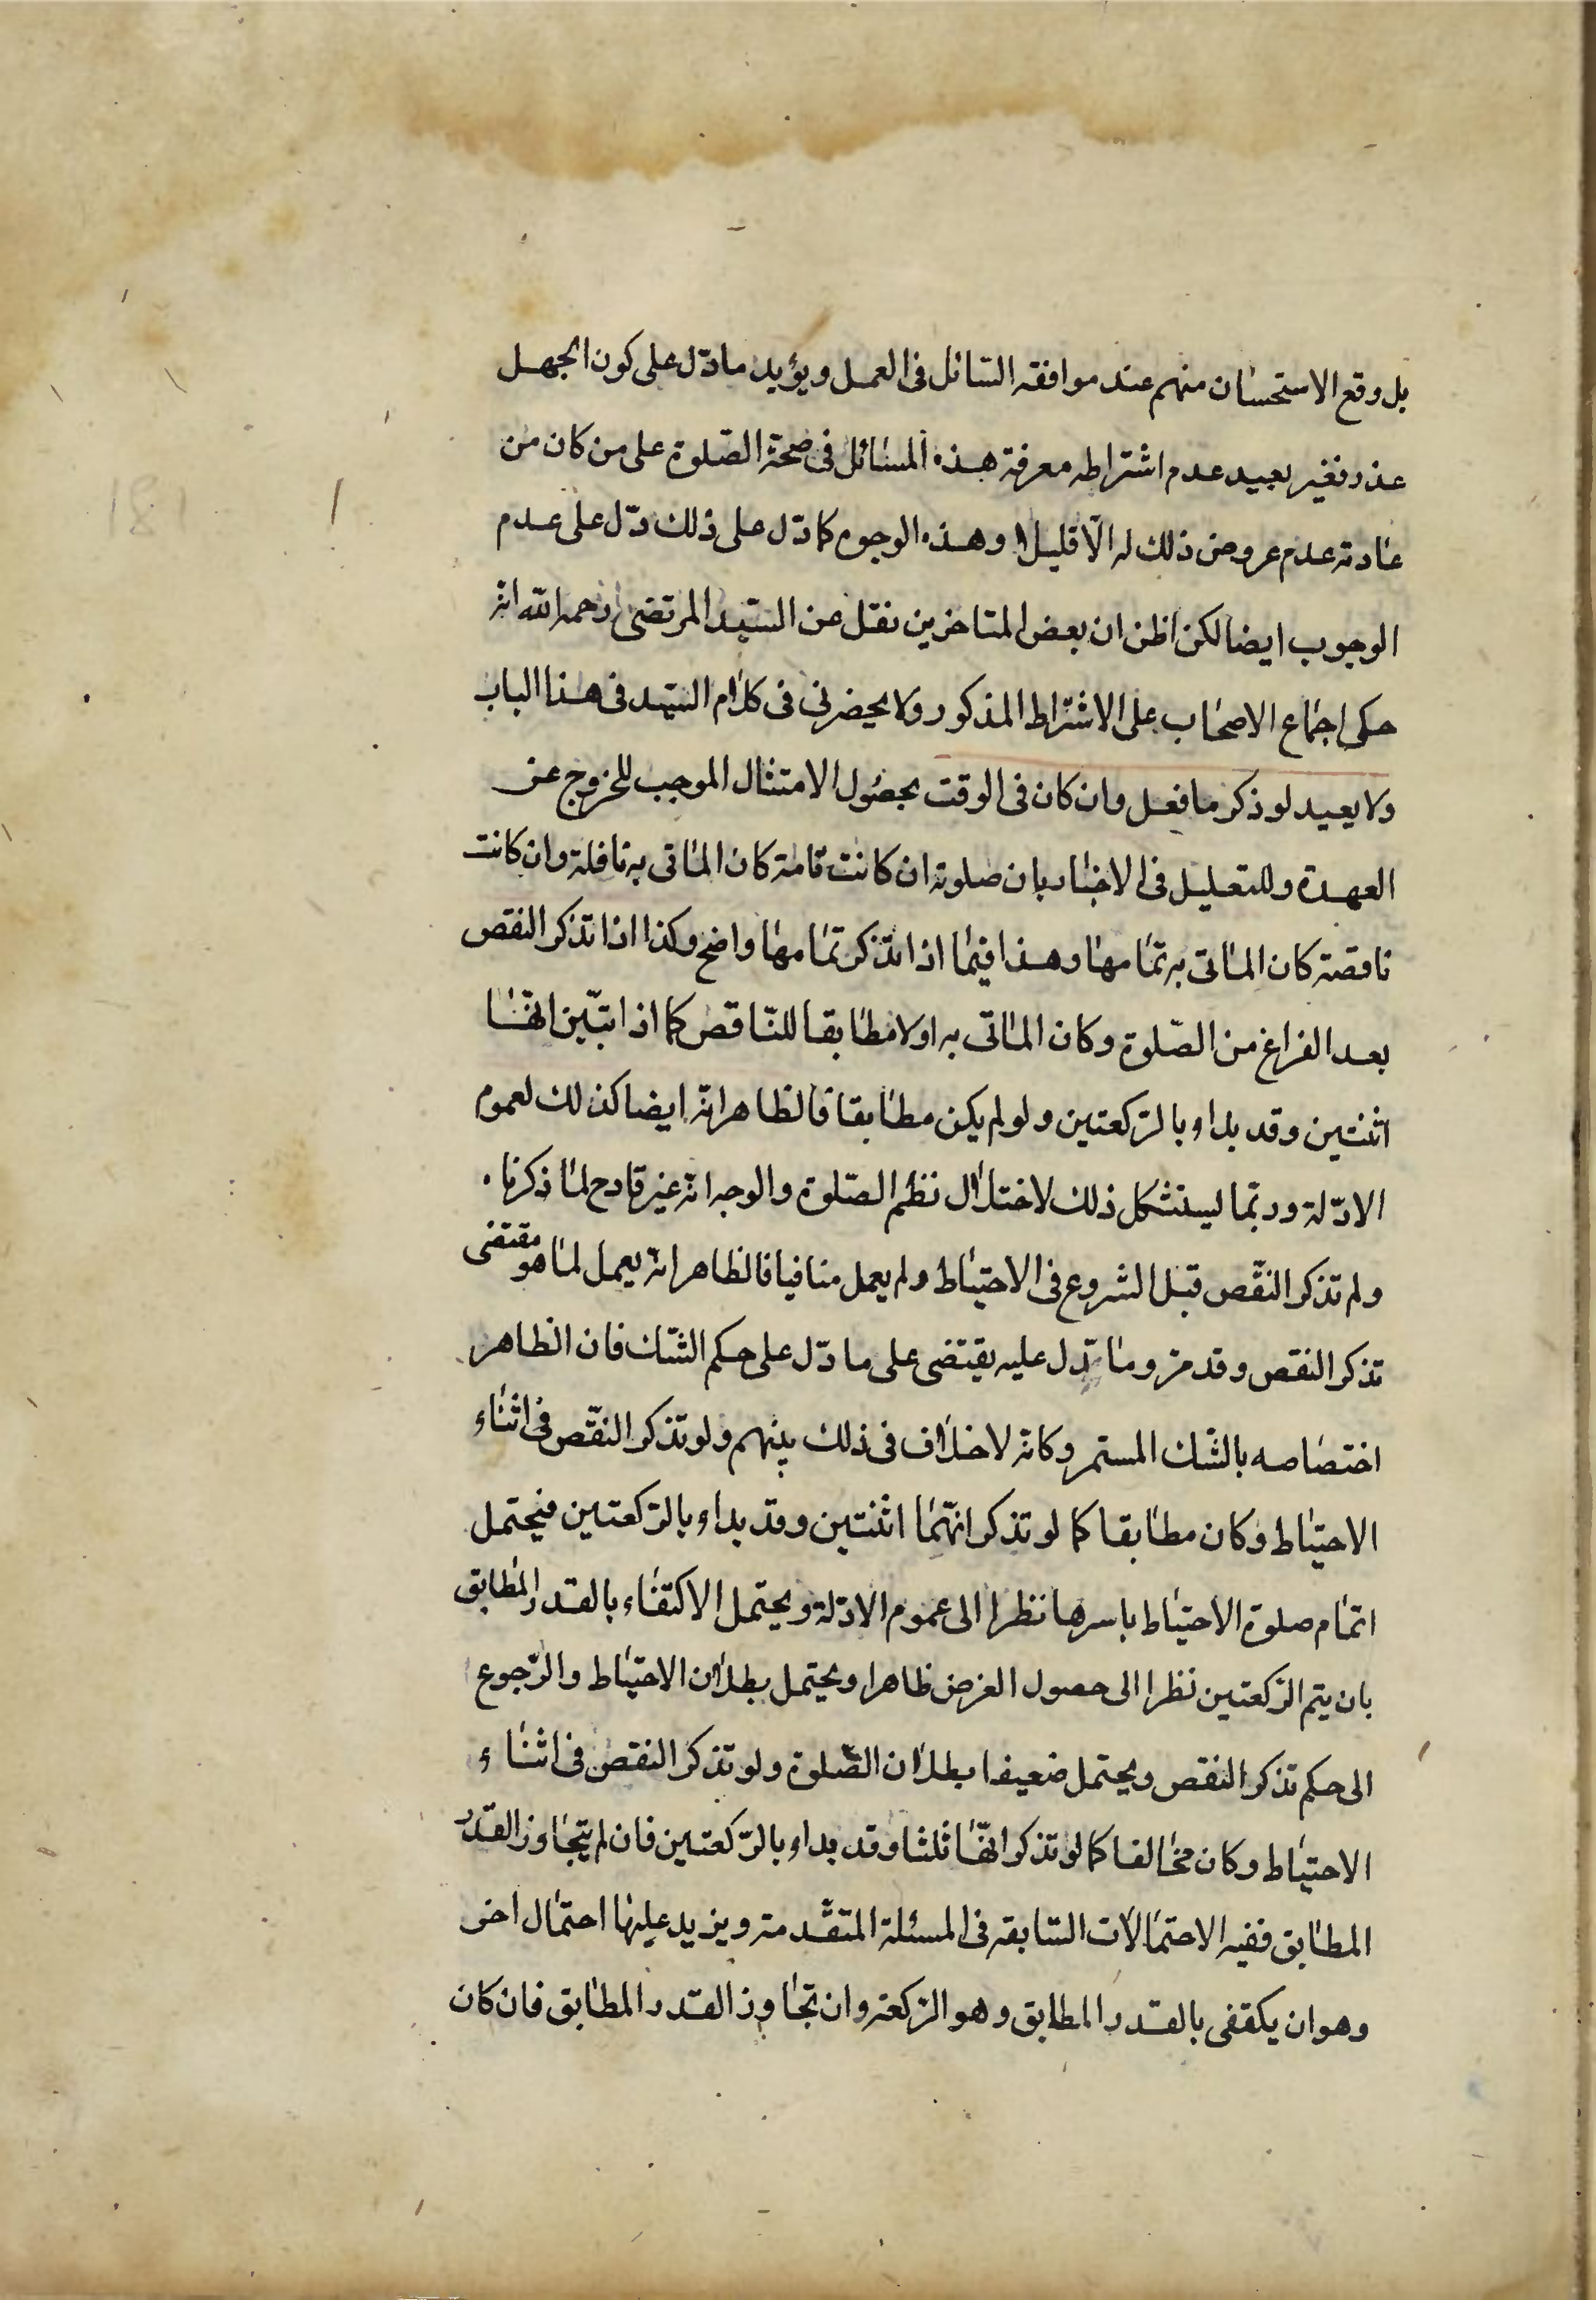 بل وقع الاستحسان منهم عند موافقه السائل فى العمل ويؤيد مادّل على كون الجهل
عذر فغير بعيد عدم اشتراطه معرفة هذه المسائل فى صحة الصّلوة على من كان من
عادته عدم عروض ذلك له الّا قليلا وهذه الوجوه كما دّل على ذلك دّل على عدم
الوجوب ايضا لكن اظن ان بعض المتاخرين نقل عن السّيد المرتضى رحمه الله انه
حكى اجماع الاصحاب على الاشتراط المذكور ولا يحضرنى فى كلام السّيد فى هذا الباب
ولا يعيد لو ذكر ما فعل وان كان فى الوقت بحصول الامتثال الموجب للخروج عن
العهدة وللتعليل فى الاخبار بان صلوته ان كانت تامة كان الماتى به نافلة وان كانت
ناقصة كان الماتى به تمامها وهذا فيما اذا تذكر تمامها واضح وكذا اذا تذكر النقص
بعد الفراغ من الصّلوة وكان الماتى به اولا مطابقا للنّاقص كما اذا تبّين انّها
اثنتين وقد بداء بالرّكعتين ولو لم يكن مطابقا فالظاهر انّه ايضا كذلك لعموم
الادّلة وربّما ليستشكل ذلك لاختلال نظم الصّلوة والوجه انّه غير قادح لما ذكرنا.
ولم تذكر النّقص قبل الشروع فى الاحتياط ولم يعمل منافيا فالظاهر انّه يعمل لما هو مقتضى
تذكر النقص وقد مرّ وما تدّل عليه يقتضى على ما دّل على حكم الشّك فان الظاهر
اختصاصه بالشّك المستمر وكانّه لا خلاف فى ذلك بينهم ولو تذكر النقّص فى اثناء
الاحتياط وكان مطابقا كما لو تذكر انّهما اثنتين وقد بداء بالرّكعتين فيحتمل
اتمام صلوة الاحتياط باسرها نظرا الى عموم الادّلة ويحتمل الاكتفاء بالقدر المطابق
بان يتم الرّكعتين نظرا الى حصول الغرض ظاهرا ويحتمل بطلان الاحتياط والرّجوع
الى حكم تذكر النقص ويحتمل ضعيفا بطلان الصّلوة ولو تذكر النقص فى اثناء
الاحتياط وكان مخالفا كما لو تذكر انّها ثلثا وقد بداء بالرّكعتين فان لم يتجاوز القدر
المطابق ففيه الاحتمالات السّابقه فى المسئلة المتقّدمة ويزيد عليها احتمال اخر
وهو ان يكتفى بالقدر المطابق وهو الرّكعة وان تجاوز القدر المطابق فان كان